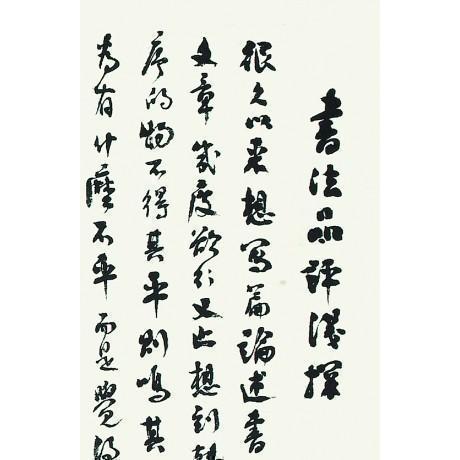 書法品評淺探
很久以來想寫篇論述書
文章幾度欲行又止想到
序的物不得其平則鳴其
為有什麼不平而是覺得